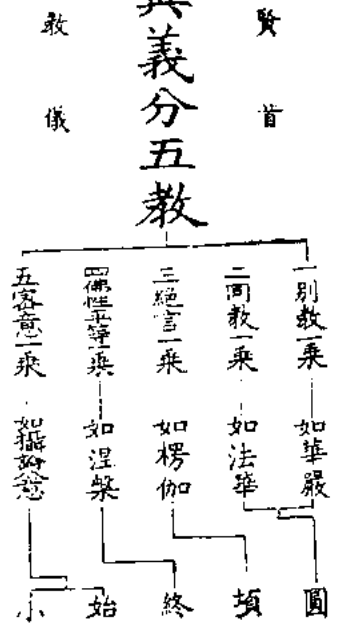 賢首
義分五教
教儀
一別教一乘 如華嚴
二同教一乘 如法華
三絕言一乘 如楞伽
四佛性平等一乘 如涅槃
五密意一乘
圓
頓
終
始
小